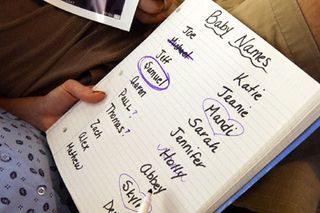 Baby Names
Joe
Hubert
Jeff
Samuel
Aaron
Paul?
Thomas?
Zach
Alex
Mathew
Katie
Jeanie
Mandi
Sarah
Jennifer
Holly
Abbey
Skyl
De